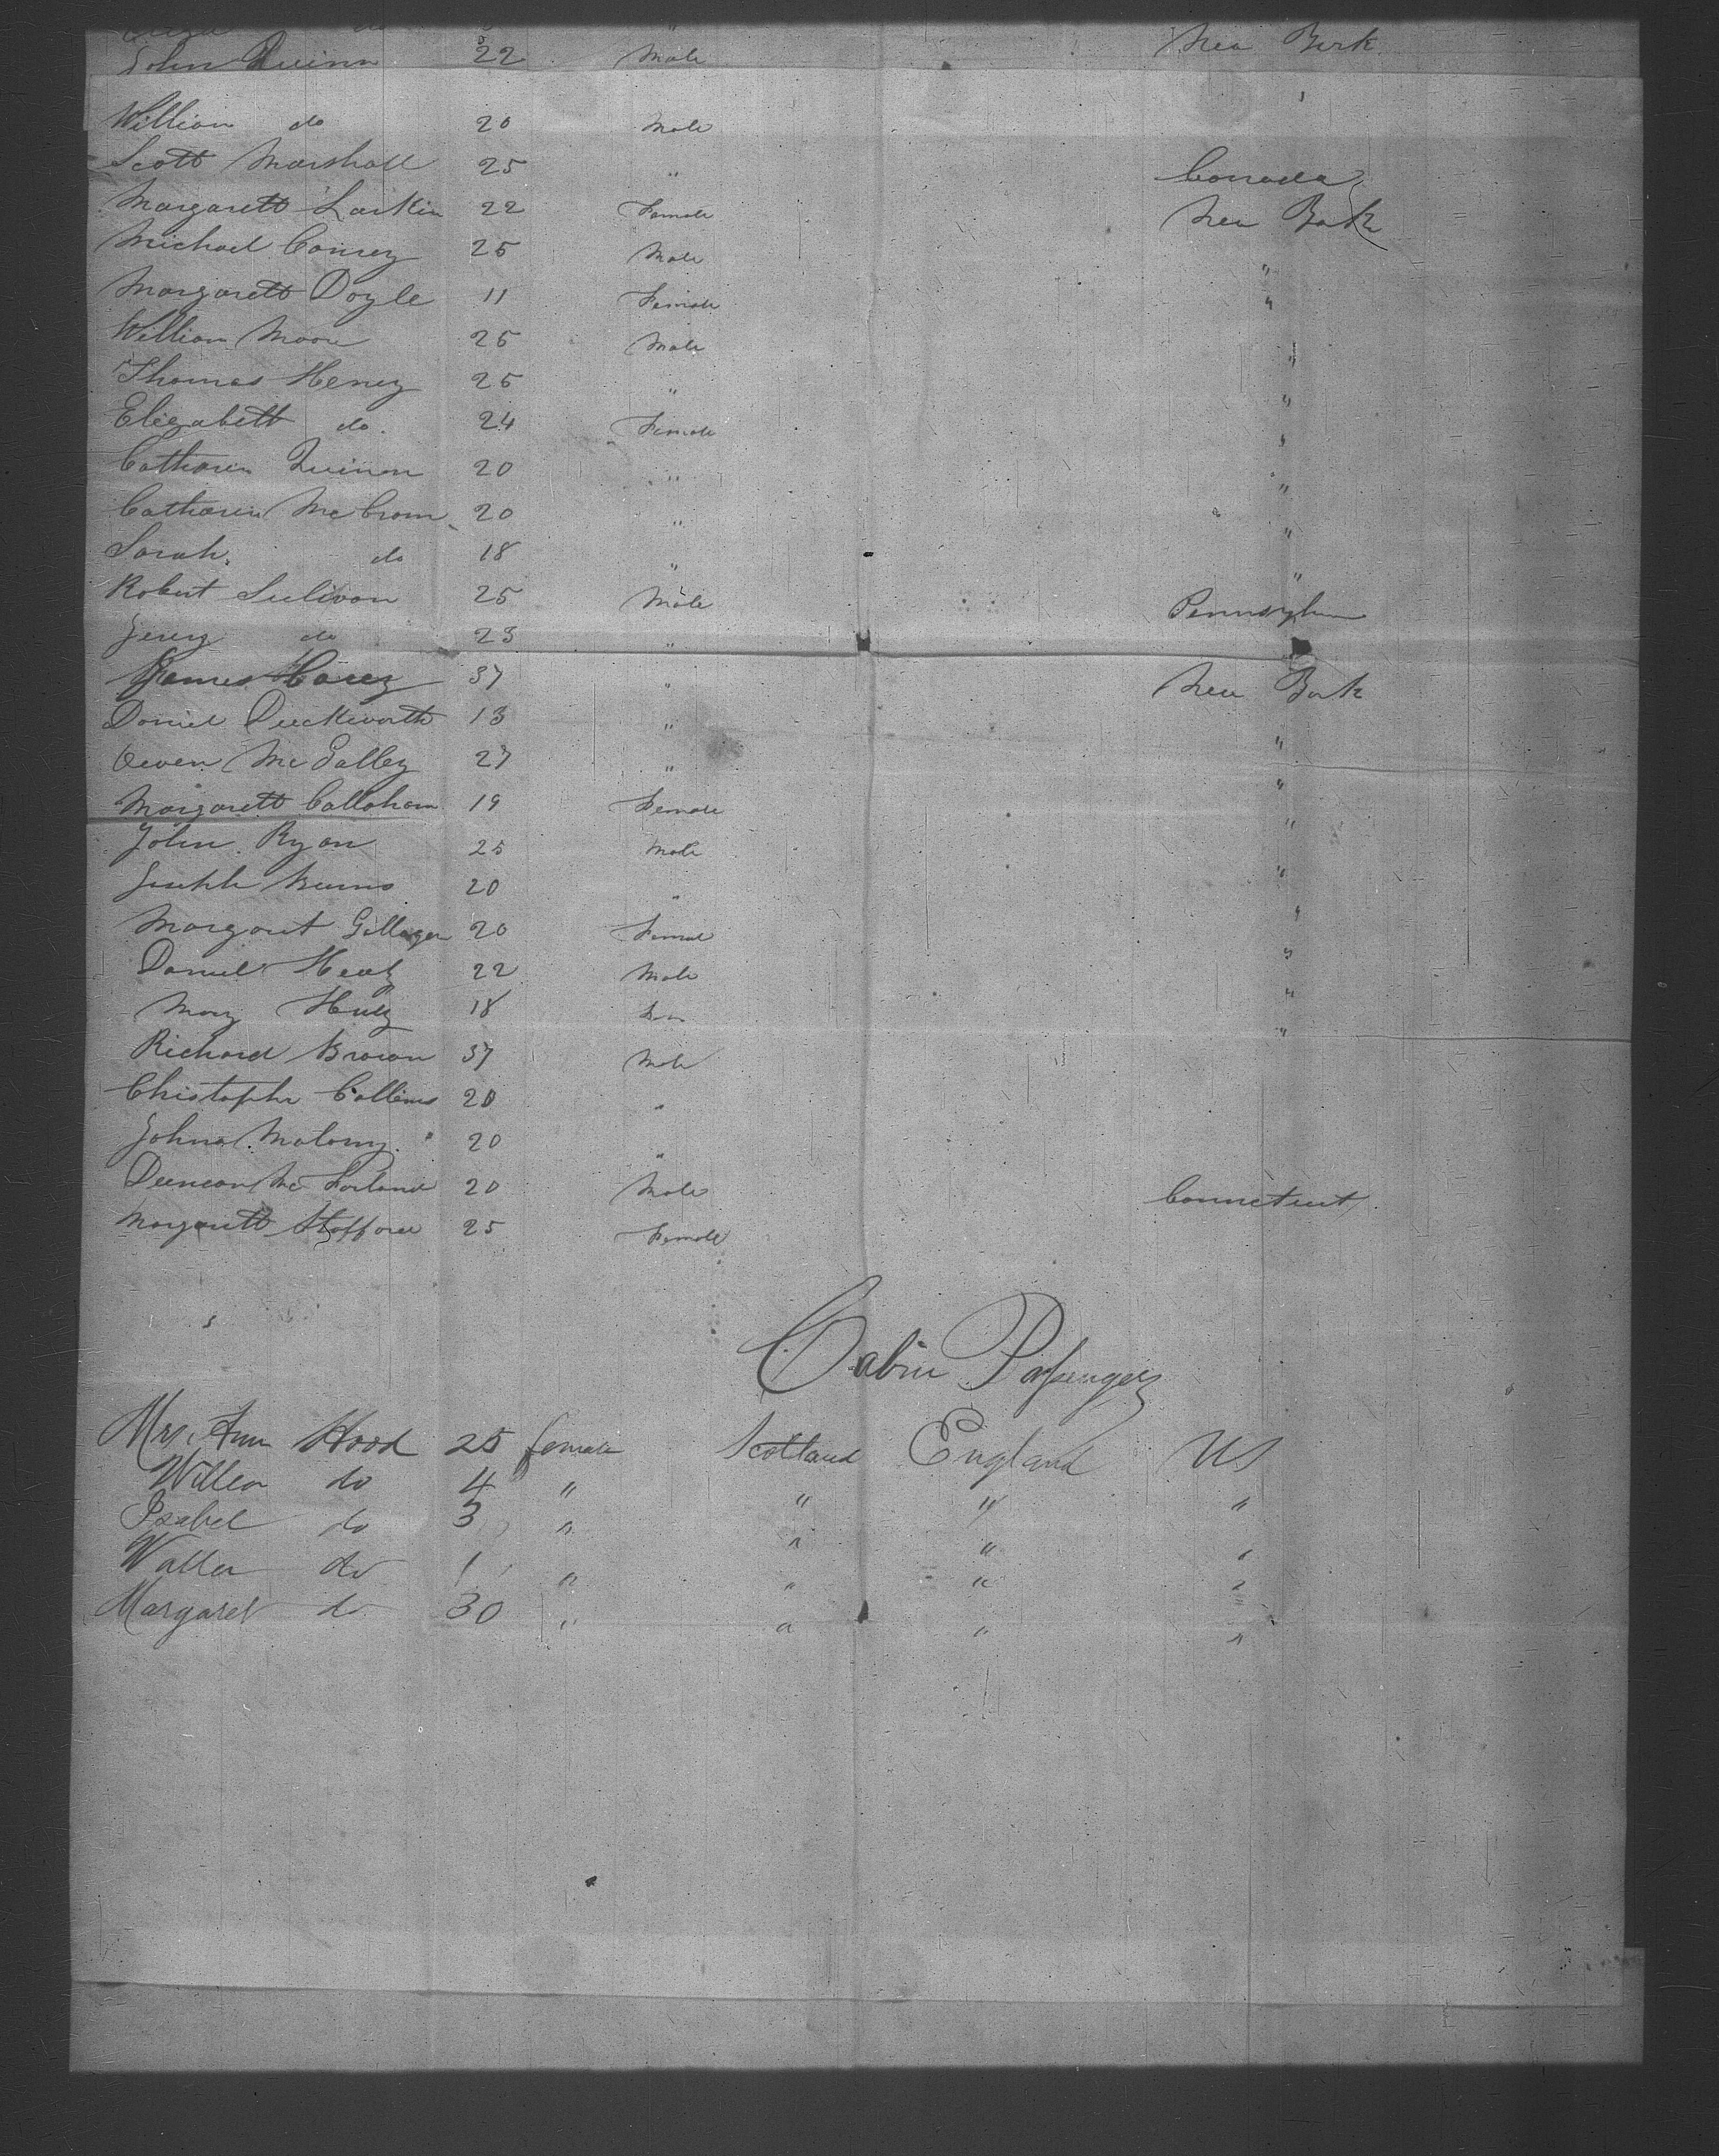 John Quinn 22 Male New York
William do 20 Male
Scott Marshall 25 " Connada
Margarett Larkin 22 Female New York
Michael Conrey 25 Male "
Margarett Doyle 11 Female "
William Moore 26 Male "
Thomas Henery 26 " "
Elizabett do. 24 Female "
Catharin Quinn 20 " "
Catharin McCrom 20 " "
Sarah do 18 " "
Robert Sulivan 25 Male Pennsylva
do 23 " "
James 37 " New York
Daniel Duckworth 13 " "
Owen Mc 27 " "
Margarett Callaham 19 Female "
John Ryan 25 Male "
Joseph Burns 20 " "
Margaret Gillagen 20 Female "
Daniel Healy 22 Male "
Mary 18 Fem "
Richard Brown 37 Male
Christopher Collins 20 "
John Malony 20 "
Duncan McFarland 20 Male Connetecut
Margarett Stafford 25 Female
Cabin Passengers
Mrs. Ann Hood 25 female Scotland England US
William do 4 " " " "
Isabel do 3 " " " "
Walter do 1 " " " "
Margaret do 30 " " " "